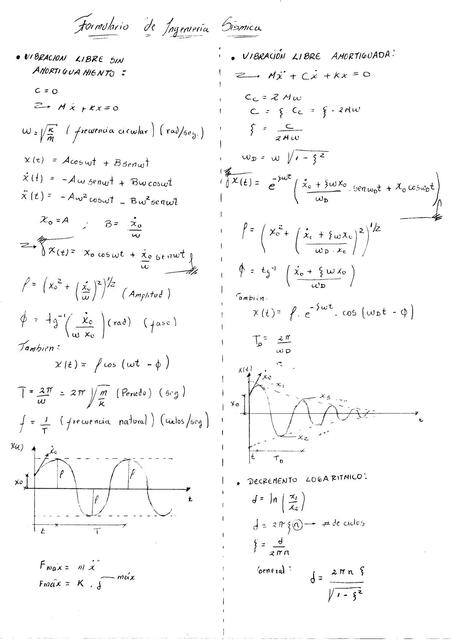 Formulario de Ingeniería Sísmica
• VIBRACION LIBRE SIN
AMORTIGUAMIENTO:
C = 0
Mẍ + Kx = 0
ω = √(K/m) (frecuencia circular) (rad/seg.)
x(t) = A cos ωt + B sen ωt
ẋ(t) = -Aω sen ωt + Bω cos ωt
ẍ(t) = -Aω² cos ωt - Bω² sen ωt
x₀ = A ; B = ẋ₀/ω
x(t) = x₀ cos ωt + ẋ₀/ω sen ωt
ρ = (x₀² + (ẋ₀/ω)²)^1/2 (Amplitud)
ϕ = tg⁻¹(ẋ₀/ω x₀) (rad) (fase)
Tambien:
x(t) = ρ cos (ωt - ϕ)
T = 2π/ω = 2π√(m/K) (Periodo) (seg)
f = 1/T (frecuencia natural) (ciclos/seg)
x(t)
ẋ₀
x₀
ρ
ρ
ρ
t
T
t
Fmáx = m ẍ
Fmáx = K . d máx
• VIBRACIÓN LIBRE AMORTIGUADA:
Mẍ + Cẋ + Kx = 0
Cc = 2Mω
C = ξ Cc = ξ · 2Mω
ξ = C/2Mω
ωD = ω √(1 - ξ²)
x(t) = e^-ξωt (ẋ₀ + ξωx₀/ωD · sen ωDt + x₀ cos ωDt)
ρ = (x₀² + (ẋ₀ + ξωx₀/ωD · x₀)²)^1/2
ϕ = tg⁻¹ (ẋ₀ + ξωx₀/ωD)
Tambien:
x(t) = ρ · e^-ξωt · cos (ωDt - ϕ)
TD = 2π/ωD
x(t)
ẋ₀
x₁
x₃
x₀
x₂
t
TD
t
• DECREMENTO LOGARITMICO:
d = ln (x₁/x₂)
d = 2πξn → # de ciclos
ξ = d/2πn
General: d = 2πnξ/√(1 - ξ²)